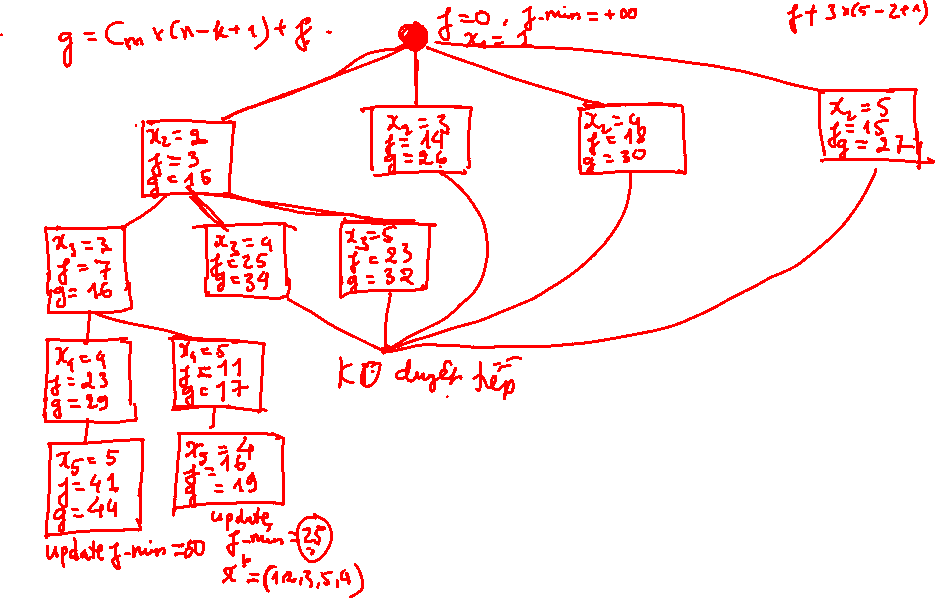 g = Cm × (n-k+1) + f.
f=0, f-min = +∞
x1 = 1
f + 3×(5-2+1)
x2 = 2
f = 3
g = 15
x2 = 3
f = 14
g = 26
x2 = 4
f = 18
g = 30
x2 = 5
f = 15
g = 27
x3 = 3
f = 7
g = 16
x3 = 4
f = 25
g = 34
x3 = 5
f = 23
g = 32
x4 = 4
f = 23
g = 29
x4 = 5
f = 11
g = 17
KO duyệt tiếp
x5 = 5
f = 41
g = 44
x5 = 4
f = 16
g = 19
update f-min = 50
update
f-min = 25
x* = (1,2,3,5,4)